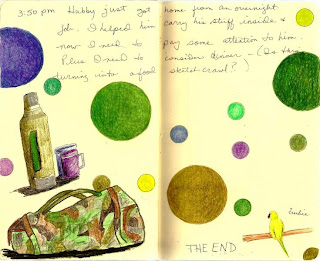 3:50 pm Hubby just got
job. I helped him
now I need to
Police I need to
turning into a food
home from an overnight
carry his stuff inside &
pay some attention to him.
consider dinner - (Is this
sketch crawl?)
THE END